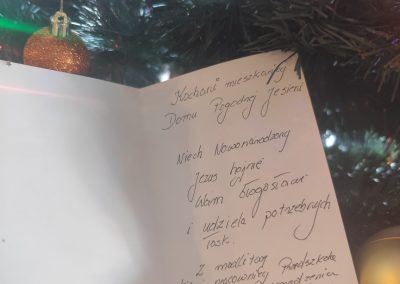 Kochani mieszkańcy
Domu Pogodnej Jesieni
Niech Nowonarodzony
Jezus hojnie
Wam błogosławi
i udziela potrzebnych
łask.
Z modlitwą
pracownicy Przedszkola